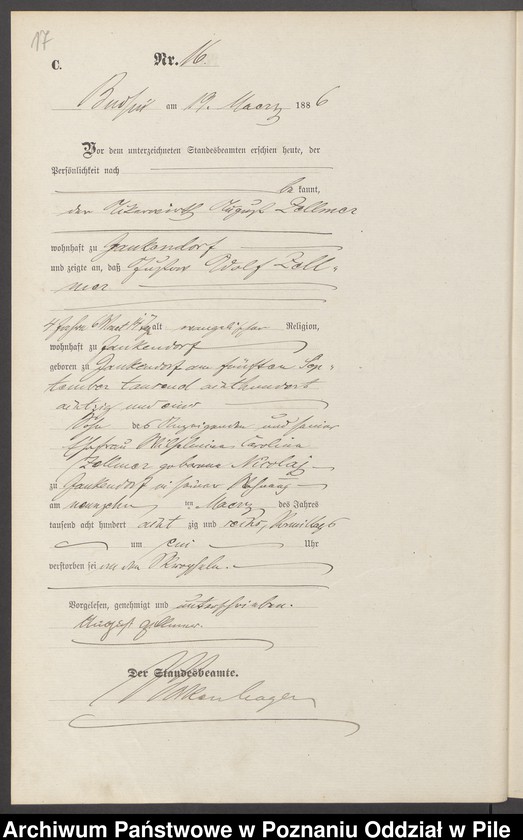 17
C.
Nr. 16.
am 19. Maerz 1886
Vor dem unterzeichneten Standesbeamten erschien heute, der
Persönlichkeit nach
be kannt,
der Ackerwirth August Zellmer
wohnhaft zu Jankendorf
und zeigte an, daß Gustav Adolf Zell-
mer
4 Jahre alt evangelischer Religion,
wohnhaft zu Jankendorf
geboren zu Jankendorf am fünften Sep-
tember tausend achthundert
achtzig und eins
Sohn des Anzeigenden und seiner
Ehefrau Wilhelmine Caroline
Zellmer geborene Nicolaj
zu Jankendorf in seiner Wohnung
am neunzehn ten Maerz des Jahres
tausend acht hundert acht zig und sechs, Vormittags
um ein Uhr
verstorben sei an den
Vorgelesen, genehmigt und unterschrieben.
August Zellmer.
Der Standesbeamte.
Archiwum Państwowe w Poznaniu Oddział w Pile